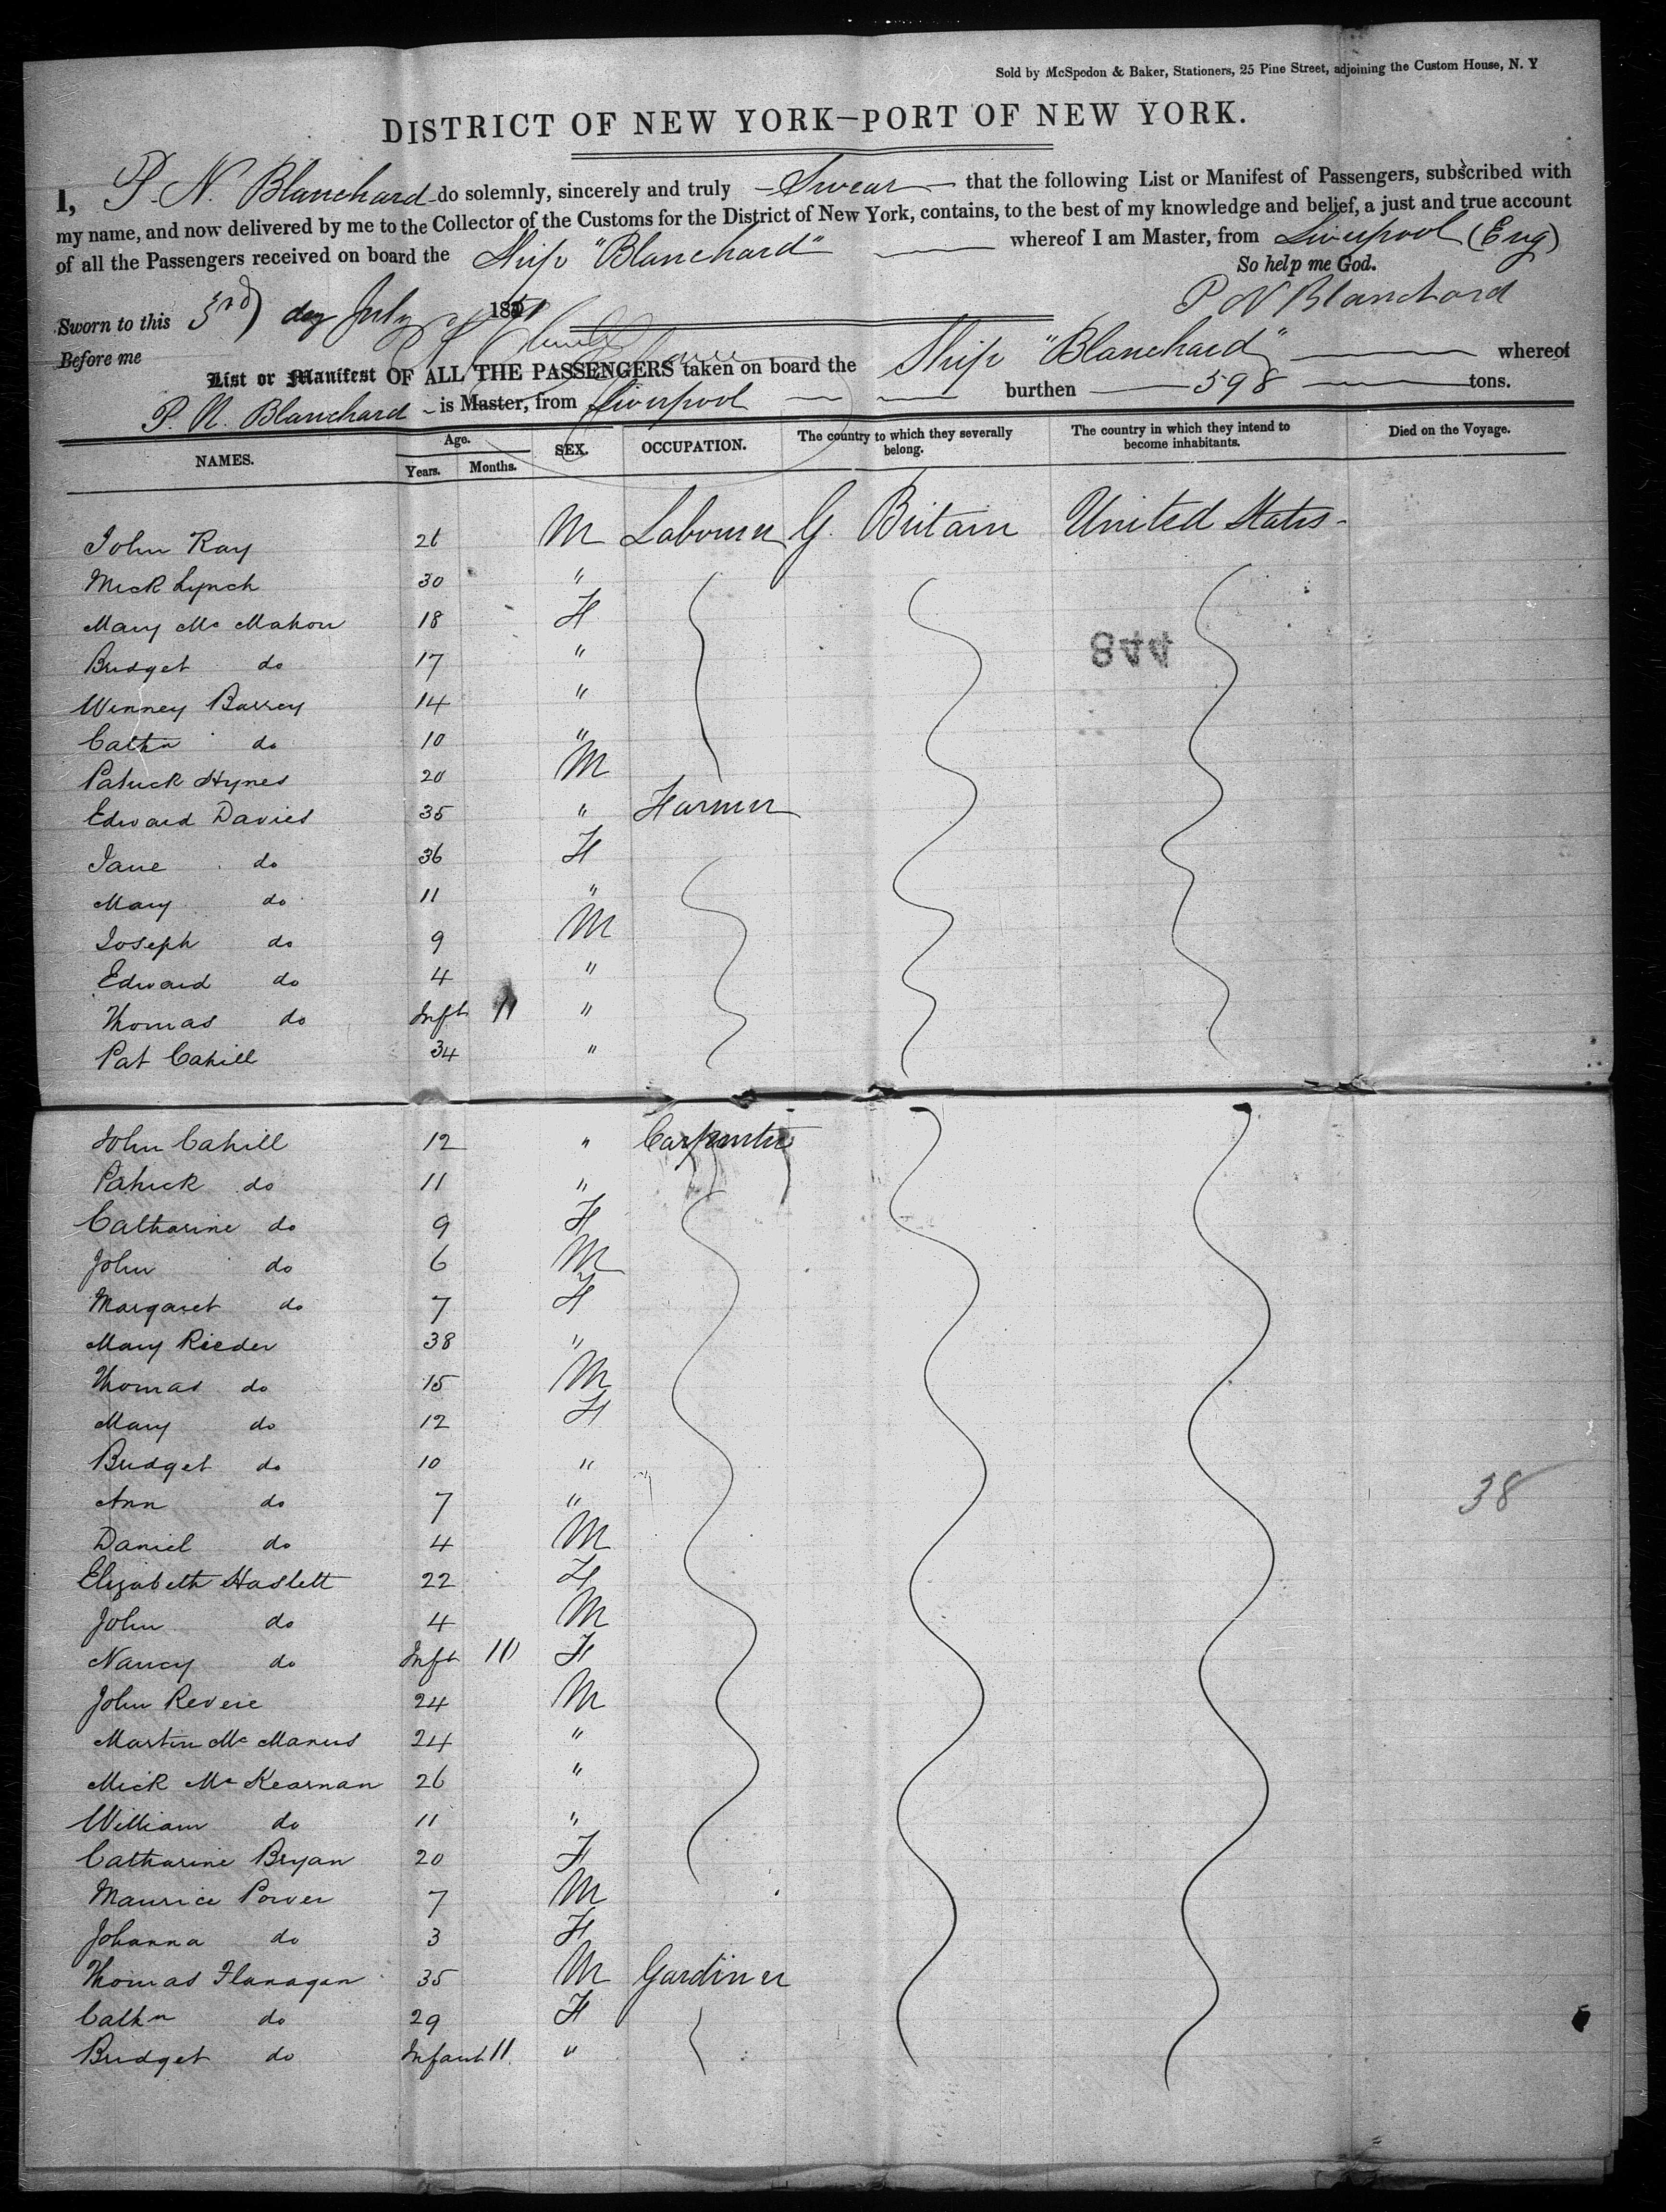 Sold by McSpedon & Baker, Stationers, 25 Pine Street, adjoining the Custom House, N. Y
DISTRICT OF NEW YORK—PORT OF NEW YORK.
I, P. N. Blanchard do solemnly, sincerely and truly Swear that the following List or Manifest of Passengers, subscribed with
my name, and now delivered by me to the Collector of the Customs for the District of New York, contains, to the best of my knowledge and belief, a just and true account
of all the Passengers received on board the Ship "Blanchard" whereof I am Master, from Liverpool (Eng)
So help me God.
Sworn to this 3rd day July 1851 P N Blanchard
Before me
List or Manifest OF ALL THE PASSENGERS taken on board the Ship "Blanchard" whereof
P. N. Blanchard is Master, from Liverpool burthen 598 tons.
NAMES. Age. Years. Months. SEX. OCCUPATION. The country to which they severally belong. The country in which they intend to become inhabitants. Died on the Voyage.
John Ray 26 M Labourer G. Britain United States
Mick Lynch 30 "
Mary Mc Mahon 18 F
844
Bridget do 17 "
Winney Barrey 14 "
Cathn do 10 "
Patrick Hynes 20 M
Edward Davies 35 " Farmer
Jane do 36 F
Mary do 11 "
Joseph do 9 M
Edward do 4 "
Thomas do Inft 11 "
Pat Cahill 34 "
John Cahill 12 " Carpenter
Patrick do 11 "
Catharine do 9 F
John do 6 M
Margaret do 7 F
Mary Rieder 38 "
Thomas do 15 M
Mary do 12 F
Bridget do 10 "
Ann do 7 " 38
Daniel do 4 M
Elizabeth Haslett 22 F
John do 4 M
Nancy do Inft 10 F
John Revere 24 M
Martin Mc Manus 24 "
Mick Mc Kearnan 26 "
William do 11 "
Catharine Bryan 20 F
Maurice Power 7 M
Johanna do 3 F
Thomas Flanagan 35 M Gardiner
Cathn do 29 F
Bridget do Infant 11 "